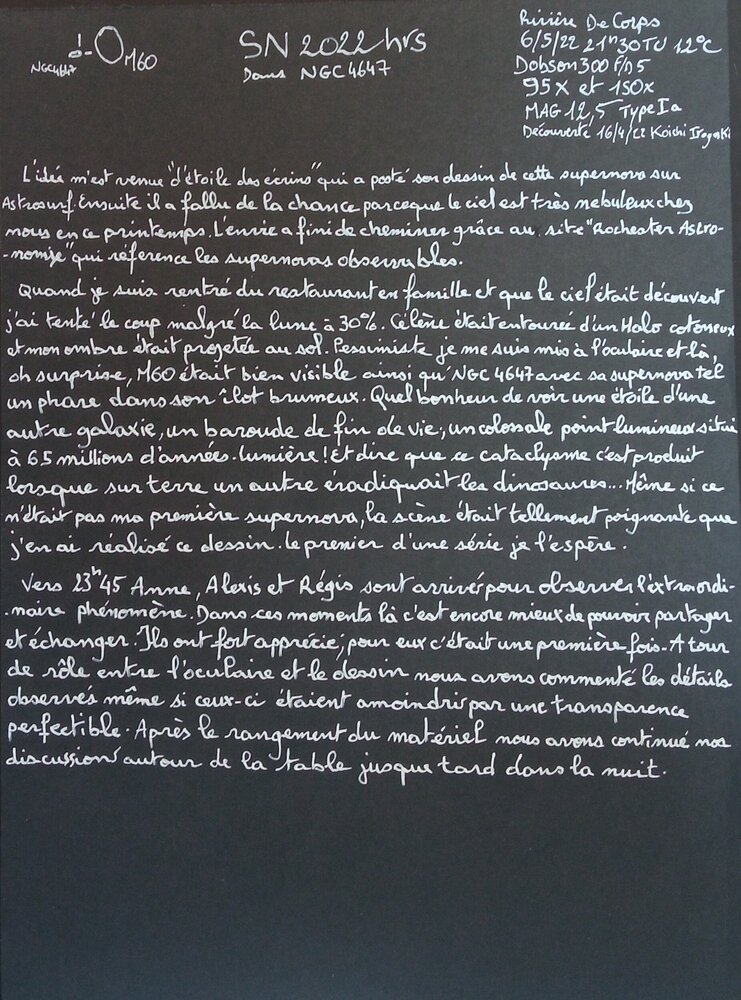 NGC4647 M60
SN 2022hrs
Dans NGC4647
Rivière De Corps
6/5/22 21h30TU 12°C
Dobson 300 F/D5
95X et 150x
MAG 12,5 Type Ia
Découverte 16/4/22 Koichi Itagaki
L'idée m'est venue "d'étoile des écrins" qui a posté son dessin de cette supernova sur
Astrosurf. Ensuite il a fallu de la chance parceque le ciel est très nebuleux chez
nous en ce printemps. L'envie a fini de cheminer grâce au site "Rochester Astro-
-nomie" qui référence les supernovas observables.
Quand je suis rentré du restaurant en famille et que le ciel était découvert
j'ai tenté le coup malgré la lune à 30%. Célène était entourée d'un Halo cotoneux
et mon ombre était projetée au sol. Pessimiste je me suis mis à l'oculaire et là,
oh surprise, M60 était bien visible ainsi qu'NGC 4647 avec sa supernova tel
un phare dans son îlot brumeux. Quel bonheur de voir une étoile d'une
autre galaxie, un baroude de fin de vie, un colossale point lumineux situé
à 65 millions d'années-lumière! Et dire que ce cataclysme c'est produit
lorsque sur terre un autre éradiquait les dinosaures... Même si ce
n'était pas ma première supernova, la scène était tellement poignante que
j'en ai réalisé ce dessin. le premier d'une série je l'espère.
Vers 23h45 Anne, Alexis et Régis sont arrivé pour observer l'extraordi-
-naire phénomène. Dans ces moments là c'est encore mieux de pouvoir partager
et échanger. Ils ont fort apprécié; pour eux c'était une première fois. A tour
de rôle entre l'oculaire et le dessin nous avons commenté les détails
observés même si ceux-ci étaient amoindri par une transparence
perfectible. Après le rangement du matériel nous avons continué nos
discussions autour de la table jusque tard dans la nuit.